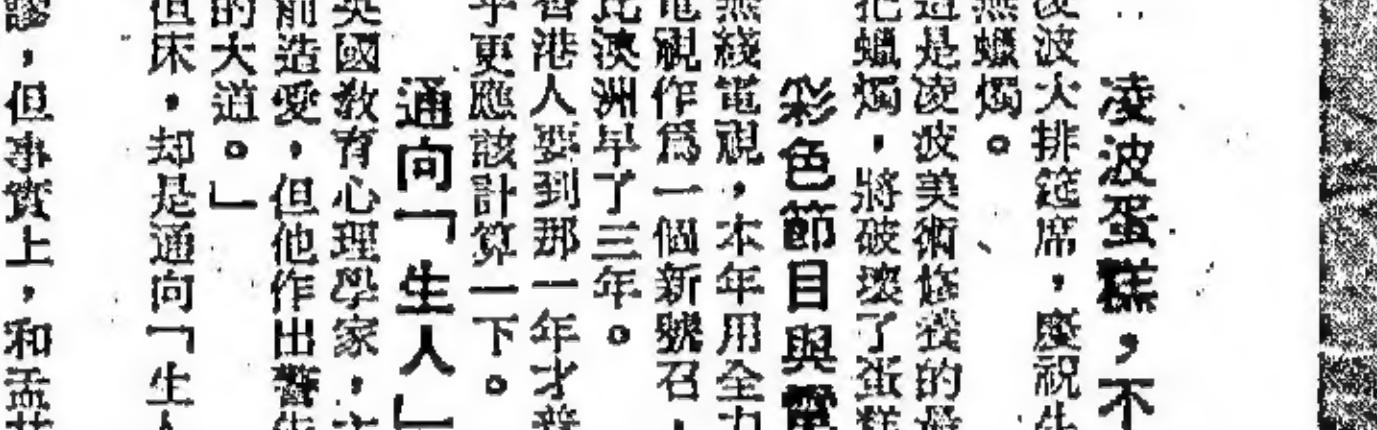 凌波蛋糕，不
凌波大排筵席，慶祝生
無蠟燭。
這是凌波美術修養的最
把蠟燭，將破壞了蛋糕
彩色節目與電
無綫電視，本年用全力
電視作爲一個新號召，
比澳洲早了三年。
香港人要到那一年才普
更應該計算一下。
通向「生人」
英國教育心理學家，主
前造愛，但他作出警告
的大道。」
但床，却是通向「生人
謬，但事實上，和孟